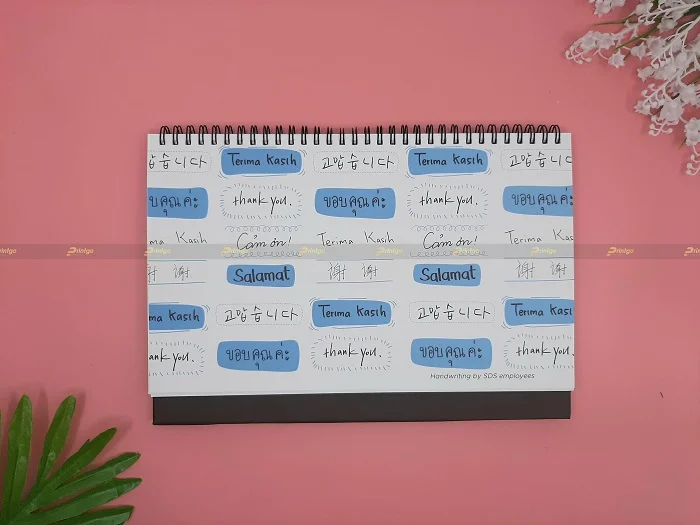 습니다 Terima Kasih 고맙습니다 Terima Kasih 고맙습니
บคุณค่ะ thank you. ขอบคุณค่ะ thank you. ขอบคุณค่ะ
ma Kasih Cảm ơn! Terima Kasih Cảm ơn! Terima Kas
Printgo Printgo Printgo Printgo Printgo Printgo Printgo Printgo Printgo
谢 Salamat 谢 谢 Salamat 谢 谢
ma Kasih 고맙습니다 Terima Kasih 고맙습니다 Terima Kasi
ank you. ขอบคุณค่ะ thank you. ขอบคุณค่ะ thank you.
Handwriting by SDS employees